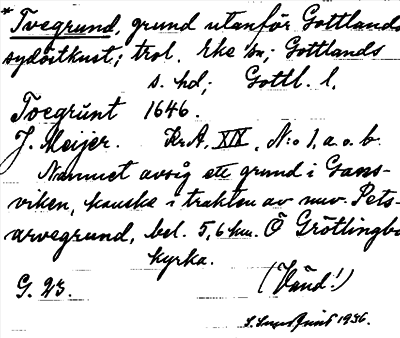 * Tvegrund, grund utanför Gottlands
sydöstkust; trol. Eke sn; Gottlands
s. hd; Gottl. l.
Tvegrŭnt 1646.
J. Meijer. Kr.A. XIX, N:o 1, a o. b.
Namnet avsåg ett grund i Gans-
viken, kanske i trakten av nuv. Pets-
arvegrund, bel. 5,6 km. Ö Grötlingbo
kyrka.
G. 23. (Vänd!)
1936.